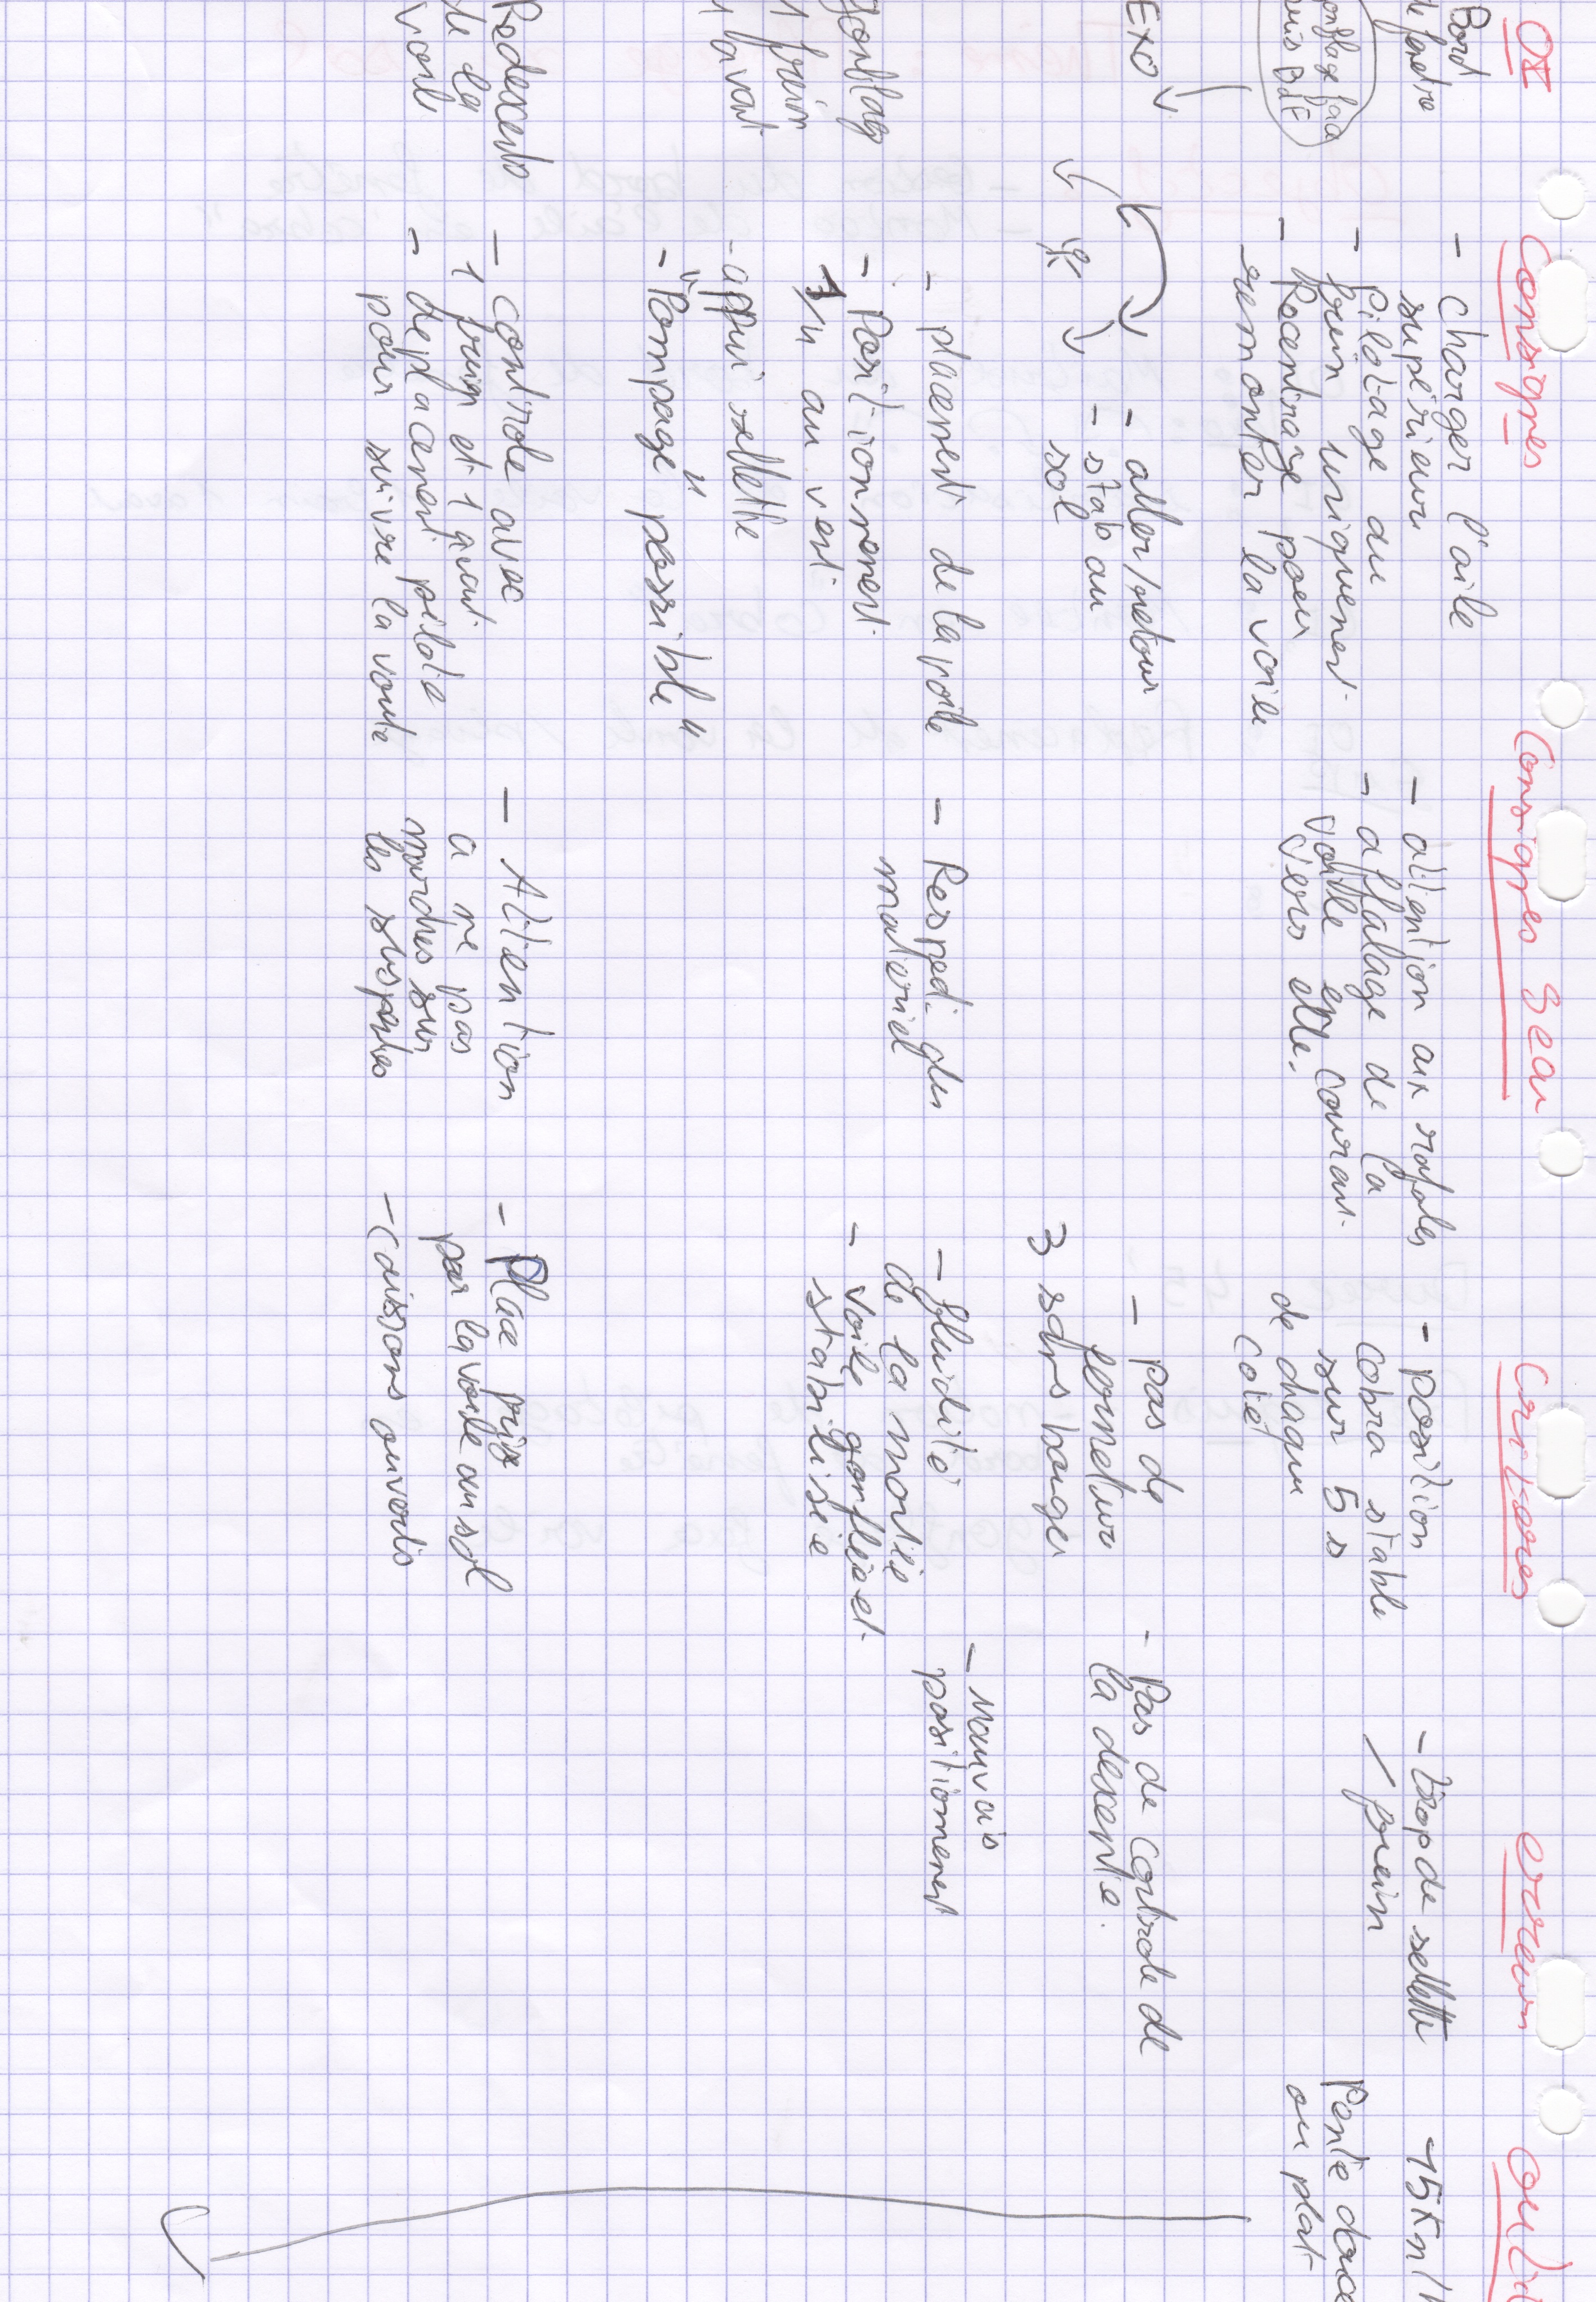 OI
Consignes
Consignes Secu
Critères
erreurs
Bord
de fenetre
gonflage face
puis BdF
- charger l'aile
supérieur
- Pilotage au
frein uniquement
- Recentrage pour
remonter la voile
- attention aux rafales
- affalage de la
voile en courant
vers elle.
- position
cobra stable
sur 5 s
de chaque
coté
- trop de sellette
/ frein
- 15 km/h
Pente douce
ou plat
Exo
- aller/retour
- stab au
sol
- pas de
fermeture
3 s sans bouger
- Pas de controle de
la descente.
gonflage
1 frein
1 avant
- placement de la voile
- Positionnement
3/4 au vent
- appui sellette
- "Pompage" possible"
- Respect du
materiel
- fluidité
de la montée
- voile gonflée et
stabilisée
- Mauvais
positionnement
Redescente
de la
voile
- controle avec
1 frein et 1 avant
- deplacement pilote
pour suivre la voute
- Attention
a ne pas
marcher sur
les suspentes
- Place prise
par la voile au sol
- Caissons ouverts